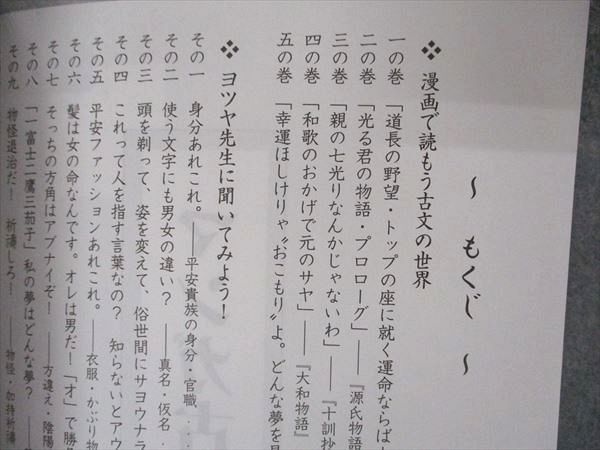 ～ もくじ ～
❖ 漫画で読もう古文の世界
一の巻 「道長の野望・トップの座に就く運命ならば
二の巻 「光る君の物語・プロローグ」――『源氏物語
三の巻 「親の七光りなんかじゃないわ」――『十訓抄
四の巻 「和歌のおかげで元のサヤ」――『大和物語』
五の巻 「幸運ほしけりゃ〝おこもり〟よ。どんな夢を見
❖ ヨツヤ先生に聞いてみよう！
その一 身分あれこれ。――平安貴族の身分・官職
その二 使う文字にも男女の違い？――真名・仮名
その三 頭を剃って、姿を変えて、俗世間にサヨウナラ
その四 これって人を指す言葉なの？ 知らないとアウ
その五 平安ファッションあれこれ。――衣服・かぶり物
その六 髪は女の命なんです。オレは男だ！「オ」で勝負
その七 そっちの方角はアブナイぞ！――方違え・陰陽
その八 「一富士二鷹三茄子」私の夢はどんな夢？――
その九 物怪退治だ！ 祈禱しろ！――物怪・加持祈禱